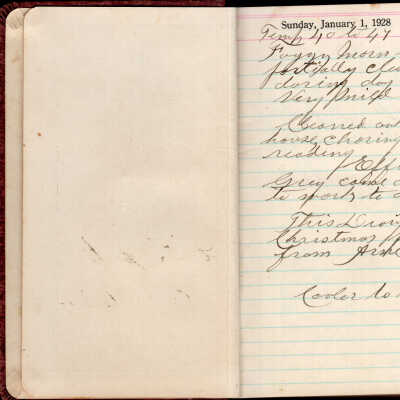 Sunday, January 1, 1928
Temp 40 to 47
Foggy Morn
partially cle
during day
Very Mild
Cleaned out
house, choring
reading
Effi
Grey came
to work to
This Diary
Christmas
from
Cooler to